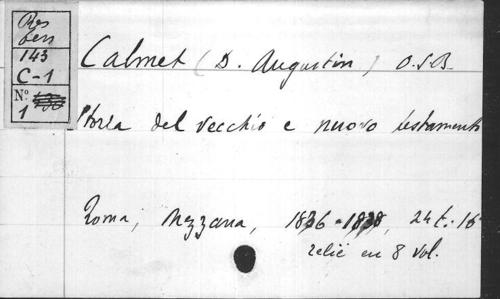 Res
bess
143
C-1
Nº
1
Calmet (D. Augustin) O.S.B.
Storia del vecchio e nuovo testamento
Roma, Mezzana, 1836-1838, 24 t. 16
relié en 8 vol.